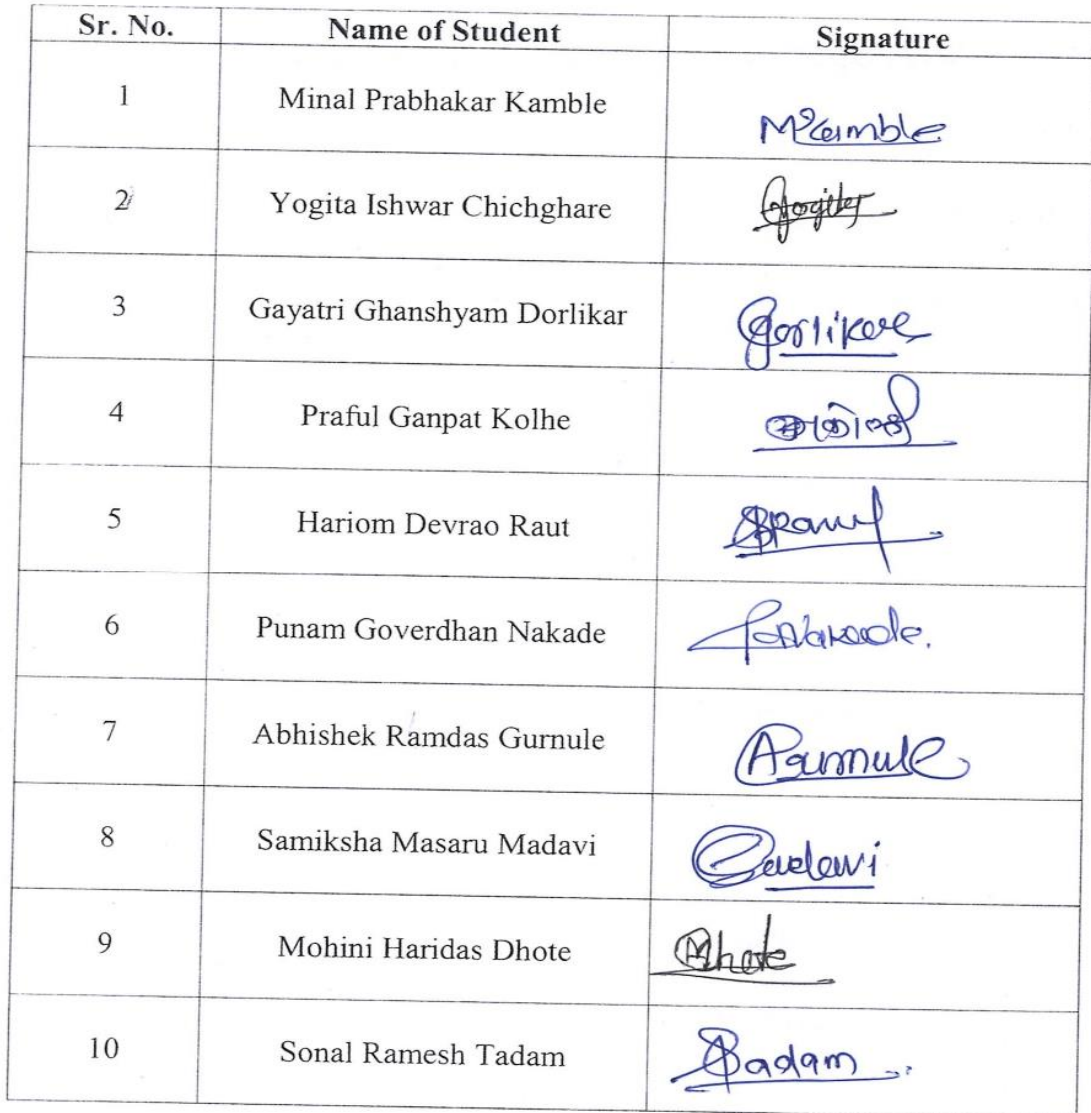 Sr. No. Name of Student Signature
1 Minal Prabhakar Kamble MKamble
2 Yogita Ishwar Chichghare Yogita
3 Gayatri Ghanshyam Dorlikar Dorlikar
4 Praful Ganpat Kolhe
5 Hariom Devrao Raut
6 Punam Goverdhan Nakade Nakade.
7 Abhishek Ramdas Gurnule
8 Samiksha Masaru Madavi
9 Mohini Haridas Dhote Dhote
10 Sonal Ramesh Tadam Tadam